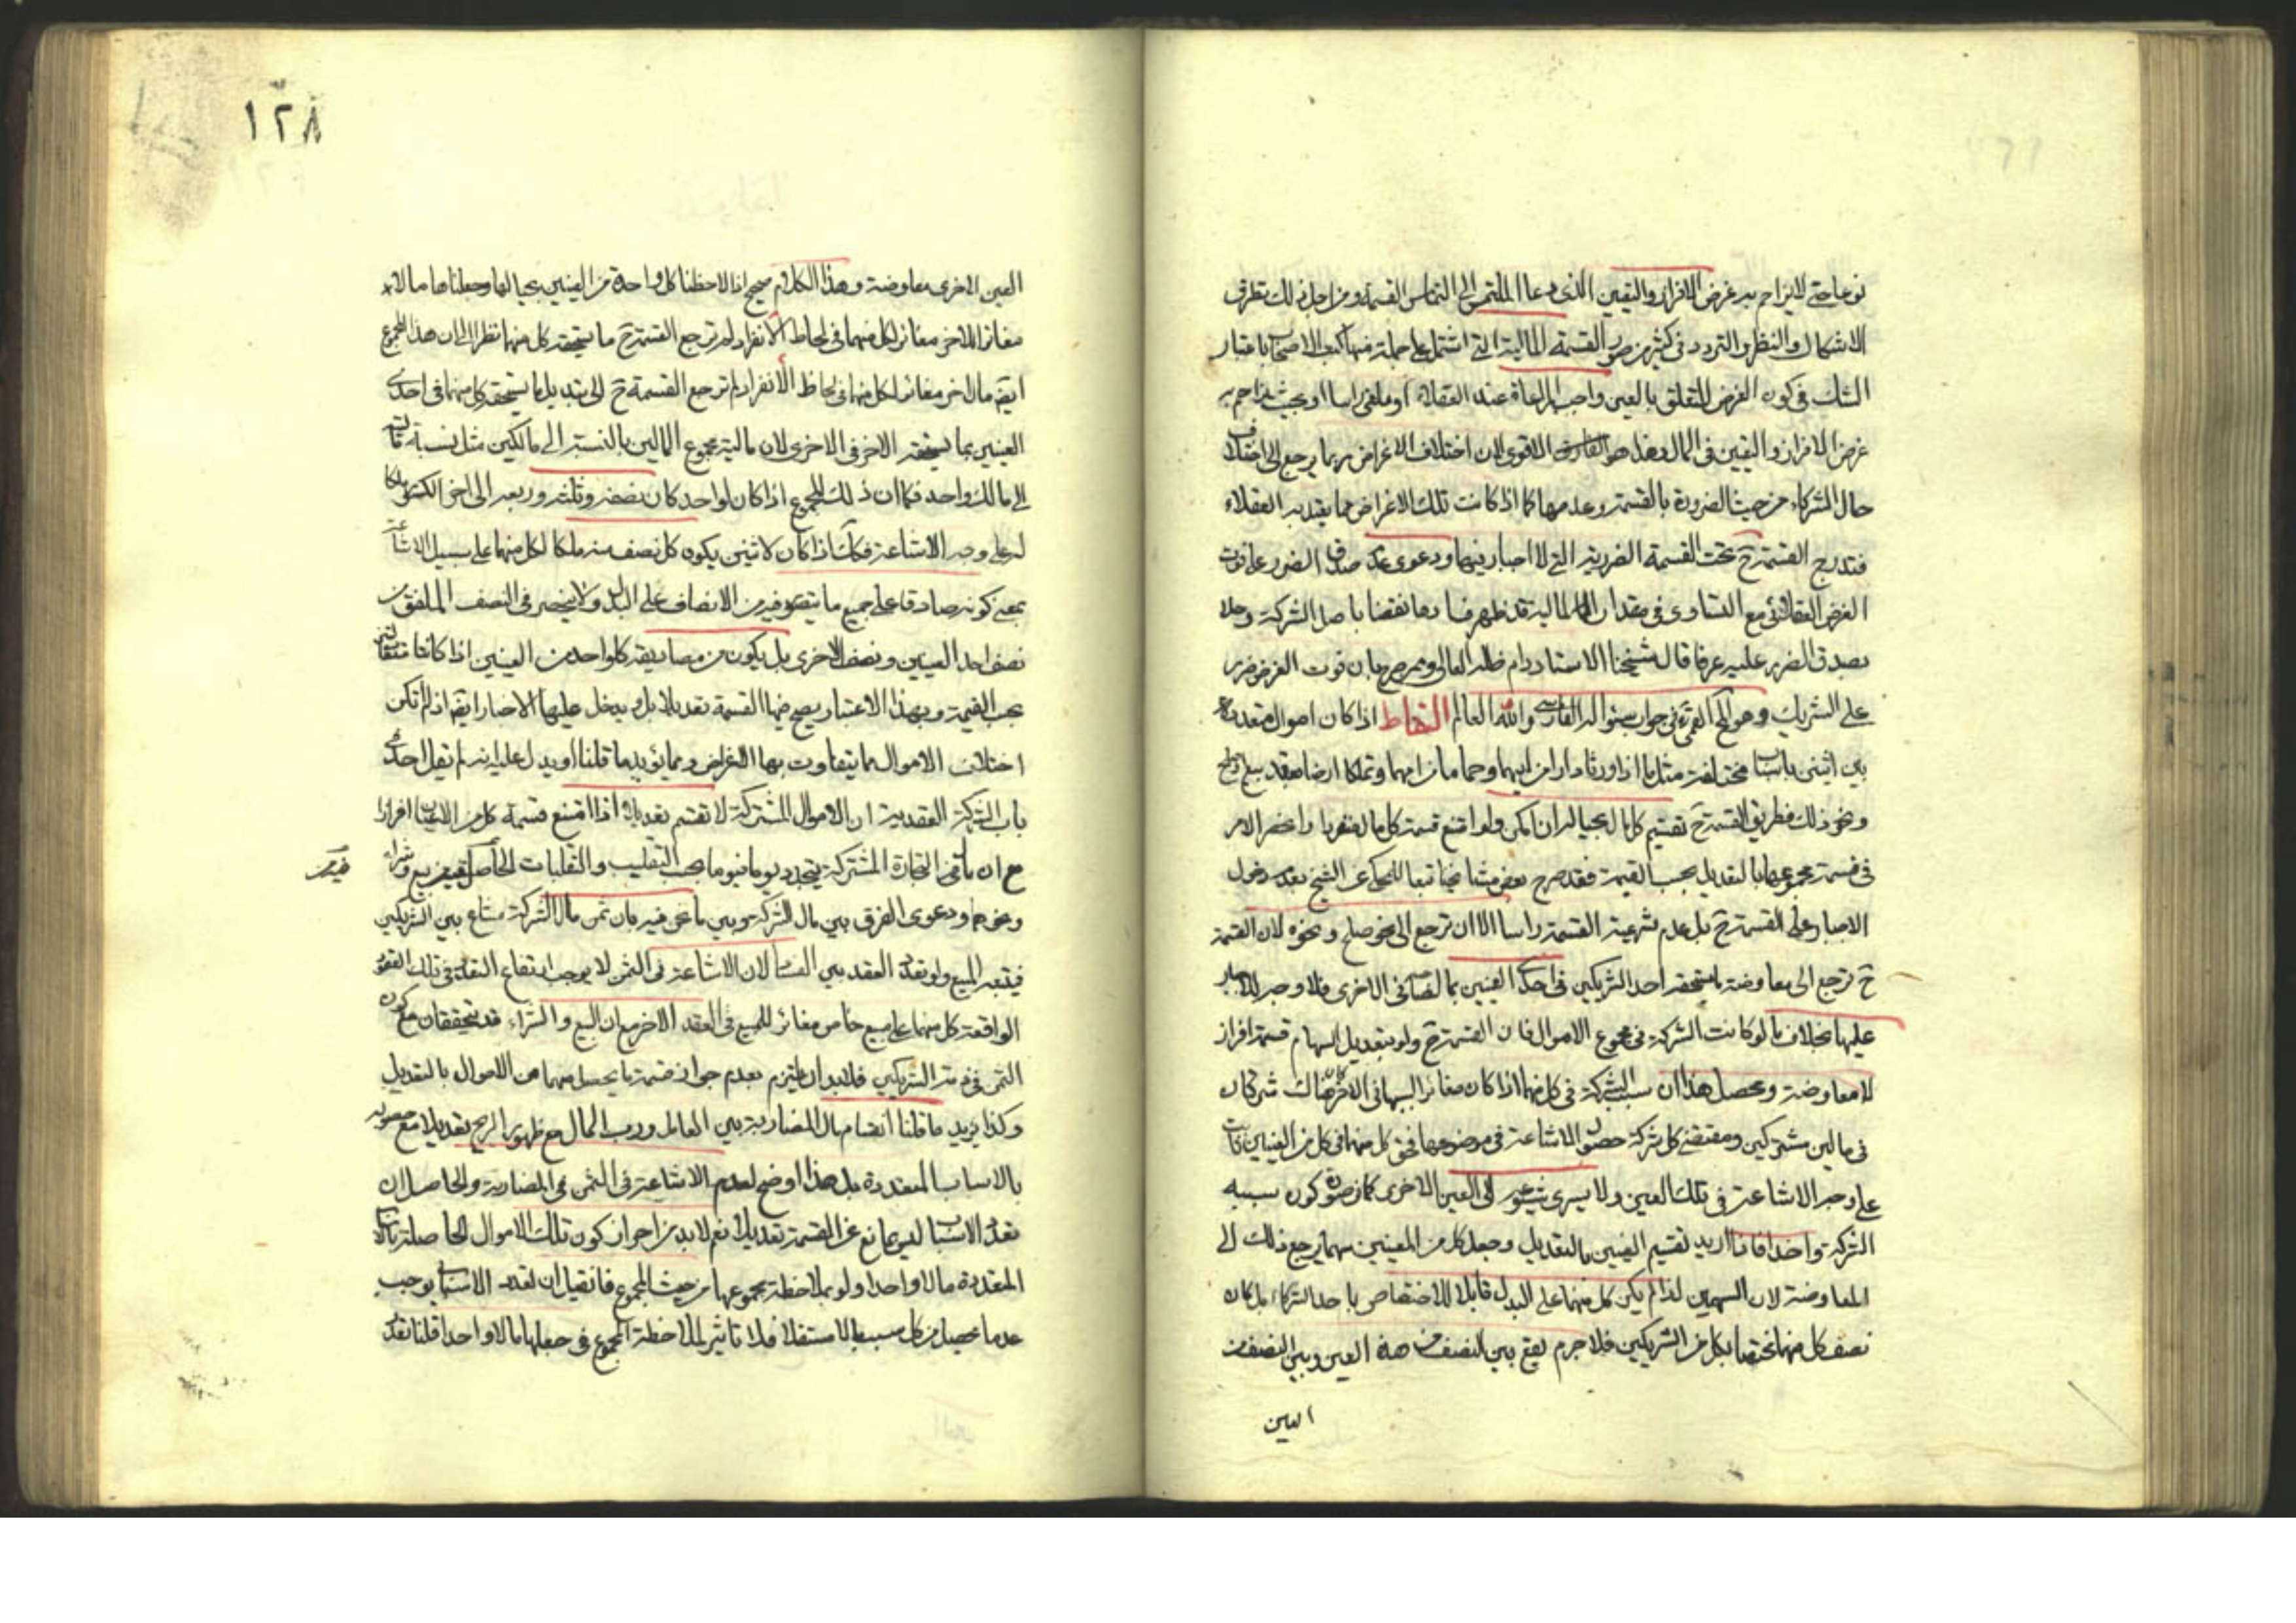 نوعا حتى لا يزاحم به غرض الافراز والتعيين الذى دعا الملتمس الى التماس القسمة ومن اجل ذلك تطرق
الاشكال والنظر والتردد فى كثير من صور القسمة المالية التى اشتمل على جملة منها كتب الاصحاب باعتبار
الشك فى كون الغرض المتعلق بالعين واجب المراعاة عند العقلاء او ملغى راسا او بحيث يزاحم به
غرض الافراز والتعيين فى المال وهذا هو الاقوى لان اختلاف الاغراض ربما يرجع الى اختلاف
حال الشركاء من حيث الضرورة بالقسمة وعدمها كما اذا كانت تلك الاغراض مما يعتد به العقلاء
فتندرج القسمة ح تحت القسمة الضررية التى لا اجبار فيها ودعوى عدم صدق الضرر على فوت
الغرض العقلائى مع التساوى فى مقدار المالية قد ظهر فسادها نقضا باصل الشركة وحلا
بصدق الضرر عليه عرفا قال شيخنا الاستاد دام ظله العالى وممن صرح بان فوت الغرض ضرر
على الشريك هو المحقق القمى فى جواب سئواله الفارسى والله العالم التقاط اذا كان اموال متعددة
بين اثنين باسباب مختلفة مثل ما اذا ورثا دارا من ابيهما وحماما من امهما وتملكا ارضا بعقد بيع او صلح
ونحو ذلك فطريق القسمة ح تقسيم كل مال بحياله ان امكن ولو امتنع قسمة كل مال منفردا وانحصر الامر
فى قسمة مجموعها بالتعديل بحسب القيمة فقد صرح بعض مشايخنا تبعا للمحكى عن الشيخ بعدم دخول
الاجبار على القسمة ح بل عدم شرعية القسمة راسا الا ان ترجع الى نحو صلح ونحوه لان القسمة
ح ترجع الى معاوضة ما يستحقه احد الشريكين فى احد العينين بما لصاحبه فى الاخرى فلا وجه للاجبار
عليها بخلاف ما لو كانت الشركة فى مجموع الاموال فان القسمة ح ولو بتعديل السهام قسمة افراز
لا معاوضة ومحصل هذا ان سبب الشركة فى كل منهما اذا كان مغايرا لسببها فى الاخر فهناك شركتان
فى مالين مشتركين ومقتضى كل شركة حصول الاشاعة فى موضوعها فحق كل منهما فى كل من العينين ثابت
على وجه الاشاعة فى تلك العين ولا يسرى شيوعه الى العين الاخرى كما فى صورة كون سببه
الشركة واحدا فاذا اريد تقسيم العينين بالتعديل وجعل كل من المعينين سهما يرجع ذلك الى
المعاوضة لان السهمين اذا لم يكن كل منهما على البدل قابلا للاختصاص باحد الشركاء بل كان
نصف كل منهما مختصا بكل من الشريكين فلا جرم يقع بين النصف من هذه العين وبين النصف من
العين
١٢٨
العين الاخرى معاوضة وهذا الكلام صحيح اذا لاحظنا كل واحدة من العينين بحيالها وجعلناها مالا
مغايرا للاخر مغايرا كل منهما فى لحاظ الانفراد لم ترجع القسمة ح ما يستحقه كل منهما نظرا الى ان هذا المجموع
ايضا مال اخر مغاير لكل منهما فى لحاظ الانفراد لم ترجع القسمة ح الى تبديل ما يستحقه كل منهما فى احدى
العينين بما يستحقه الاخر فى الاخرى لان مالية مجموع المالين بالنسبة الى مالكين مثل نسبة ماليته
الى مالك واحد فكما ان ذلك المجموع اذا كان لواحد كان نصفه وثلثه وربعه الى اخر الكسور ملكا
له على وجه الاشاعة فكك اذا كان لاثنين يكون كل نصف منه ملكا لكل منهما على سبيل الاشاعة
بمعنى كونه صادقا على جميع ما يتصور فيه من الانصاف على البدل ولا ينحصر فى النصف الملفق من
نصف احد العينين ونصف الاخرى بل يكون من مصاديقه كل واحد من العينين اذا كانتا متساويتين
بحسب القيمة وبهذا الاعتبار يصح فيها القسمة تعديلا بل ويدخل عليها الاجبار ايضا اذا لم تكن
اختلاف الاموال مما يتفاوت بها الاغراض ومما يؤيد ما قلنا او يدل عليه انه لم يقل احد فى
باب الشركة العقدية ان الاموال المشتركة لا تقسم تعديلا اذا امتنع قسمة كل من الاعيان افرازا
مع ان ما فى التجارة المشتركة يتجدد يوما فيوما بحسب التقليب والتقلبات الحاصلة فيه من بيع وشراء
ونحوهما ودعوى الفرق بين مال الشركة وبين ما نحن فيه بان ثمن مال الشركة مشاع بين الشريكين
فيتبعه المبيع ولو تعدد العقد بين لان الاشاعة فى الثمن لا يوجب ارتفاع التعدد فى تلك العقود
الواقعة كل منهما على مبيع خاص مغاير للمبيع فى العقد الاخر مع ان البيع والشراء قد يتحققان مع كون
الثمن فى ذمة الشريكين فلابد ان يلتزم بعدم جواز قسمة ما يحصل منهما من الاموال بالتعديل
وكذا يؤيد ما قلنا انقسام مال المضاربة بين العامل ورب المال مع ظهور الربح تعديلا مع حصوله
بالاسباب المتعددة بل هذا اوضح لعدم الاشاعة فى الثمن فى المضاربة والحاصل ان
تعدد الاسباب ليس مانع عن القسمة تعديلا نعم لابد من احراز كون تلك الاموال الحاصلة بالاسباب
المتعددة مالا واحدا ولو بملاحظة مجموعها من حيث المجموع فان قيل ان تعدد الاسباب يوجب
عد ما يحصل من كل سبب مالا مستقلا فلا تاثير لملاحظة المجموع فى جعلها مالا واحدا قلنا تعدد